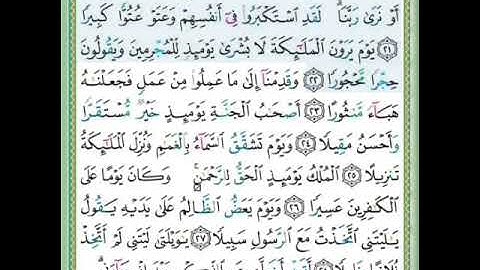 أَوْ نَرَىٰ رَبَّنَا ۗ لَقَدِ اسْتَكْبَرُوا فِي أَنفُسِهِمْ وَعَتَوْ عُتُوًّا كَبِيرًا
﴿٢١﴾ يَوْمَ يَرَوْنَ الْمَلَائِكَةَ لَا بُشْرَىٰ يَوْمَئِذٍ لِّلْمُجْرِمِينَ وَيَقُولُونَ
حِجْرًا مَّحْجُورًا ﴿٢٢﴾ وَقَدِمْنَا إِلَىٰ مَا عَمِلُوا مِنْ عَمَلٍ فَجَعَلْنَاهُ
هَبَاءً مَّنثُورًا ﴿٢٣﴾ أَصْحَابُ الْجَنَّةِ يَوْمَئِذٍ خَيْرٌ مُّسْتَقَرًّا
وَأَحْسَنُ مَقِيلًا ﴿٢٤﴾ وَيَوْمَ تَشَقَّقُ السَّمَاءُ بِالْغَمَامِ وَنُزِّلَ الْمَلَائِكَةُ
تَنزِيلًا ﴿٢٥﴾ الْمُلْكُ يَوْمَئِذٍ الْحَقُّ لِلرَّحْمَٰنِ ۚ وَكَانَ يَوْمًا عَلَى
الْكَافِرِينَ عَسِيرًا ﴿٢٦﴾ وَيَوْمَ يَعَضُّ الظَّالِمُ عَلَىٰ يَدَيْهِ يَقُولُ
يَا لَيْتَنِي اتَّخَذْتُ مَعَ الرَّسُولِ سَبِيلًا ﴿٢٧﴾ يَا وَيْلَتَىٰ لَيْتَنِي لَمْ أَتَّخِذْ